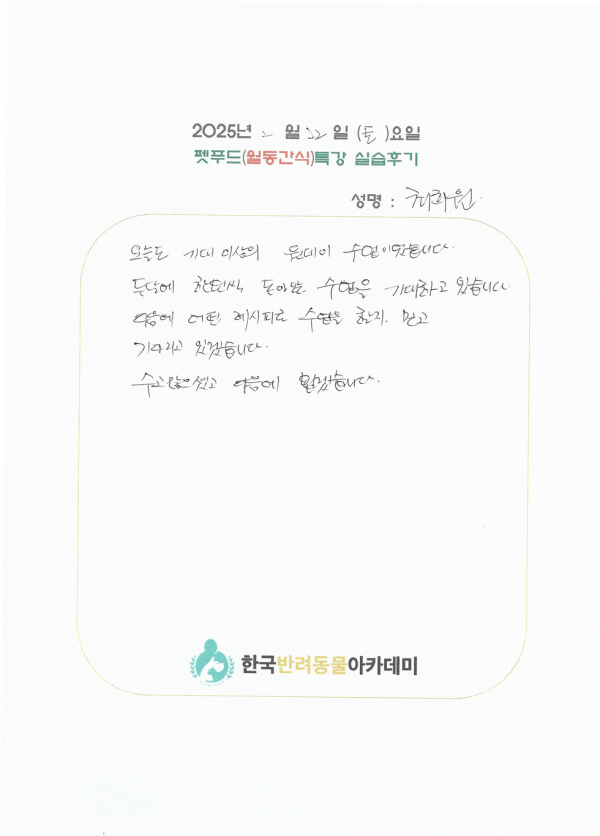 2025년 2월 22일 (토)요일
펫푸드(월동간식)특강 실습후기
성명 : 최화원
오늘도 기대 이상의 원데이 수업이었습니다.
두달에 한번씩 돌아오는 수업을 기대하고 있습니다.
다음에 어떤 레시피로 수업을 할지. 믿고
기다리고 있겠습니다.
수고많으셨고 다음에 뵙겠습니다.
한국반려동물아카데미